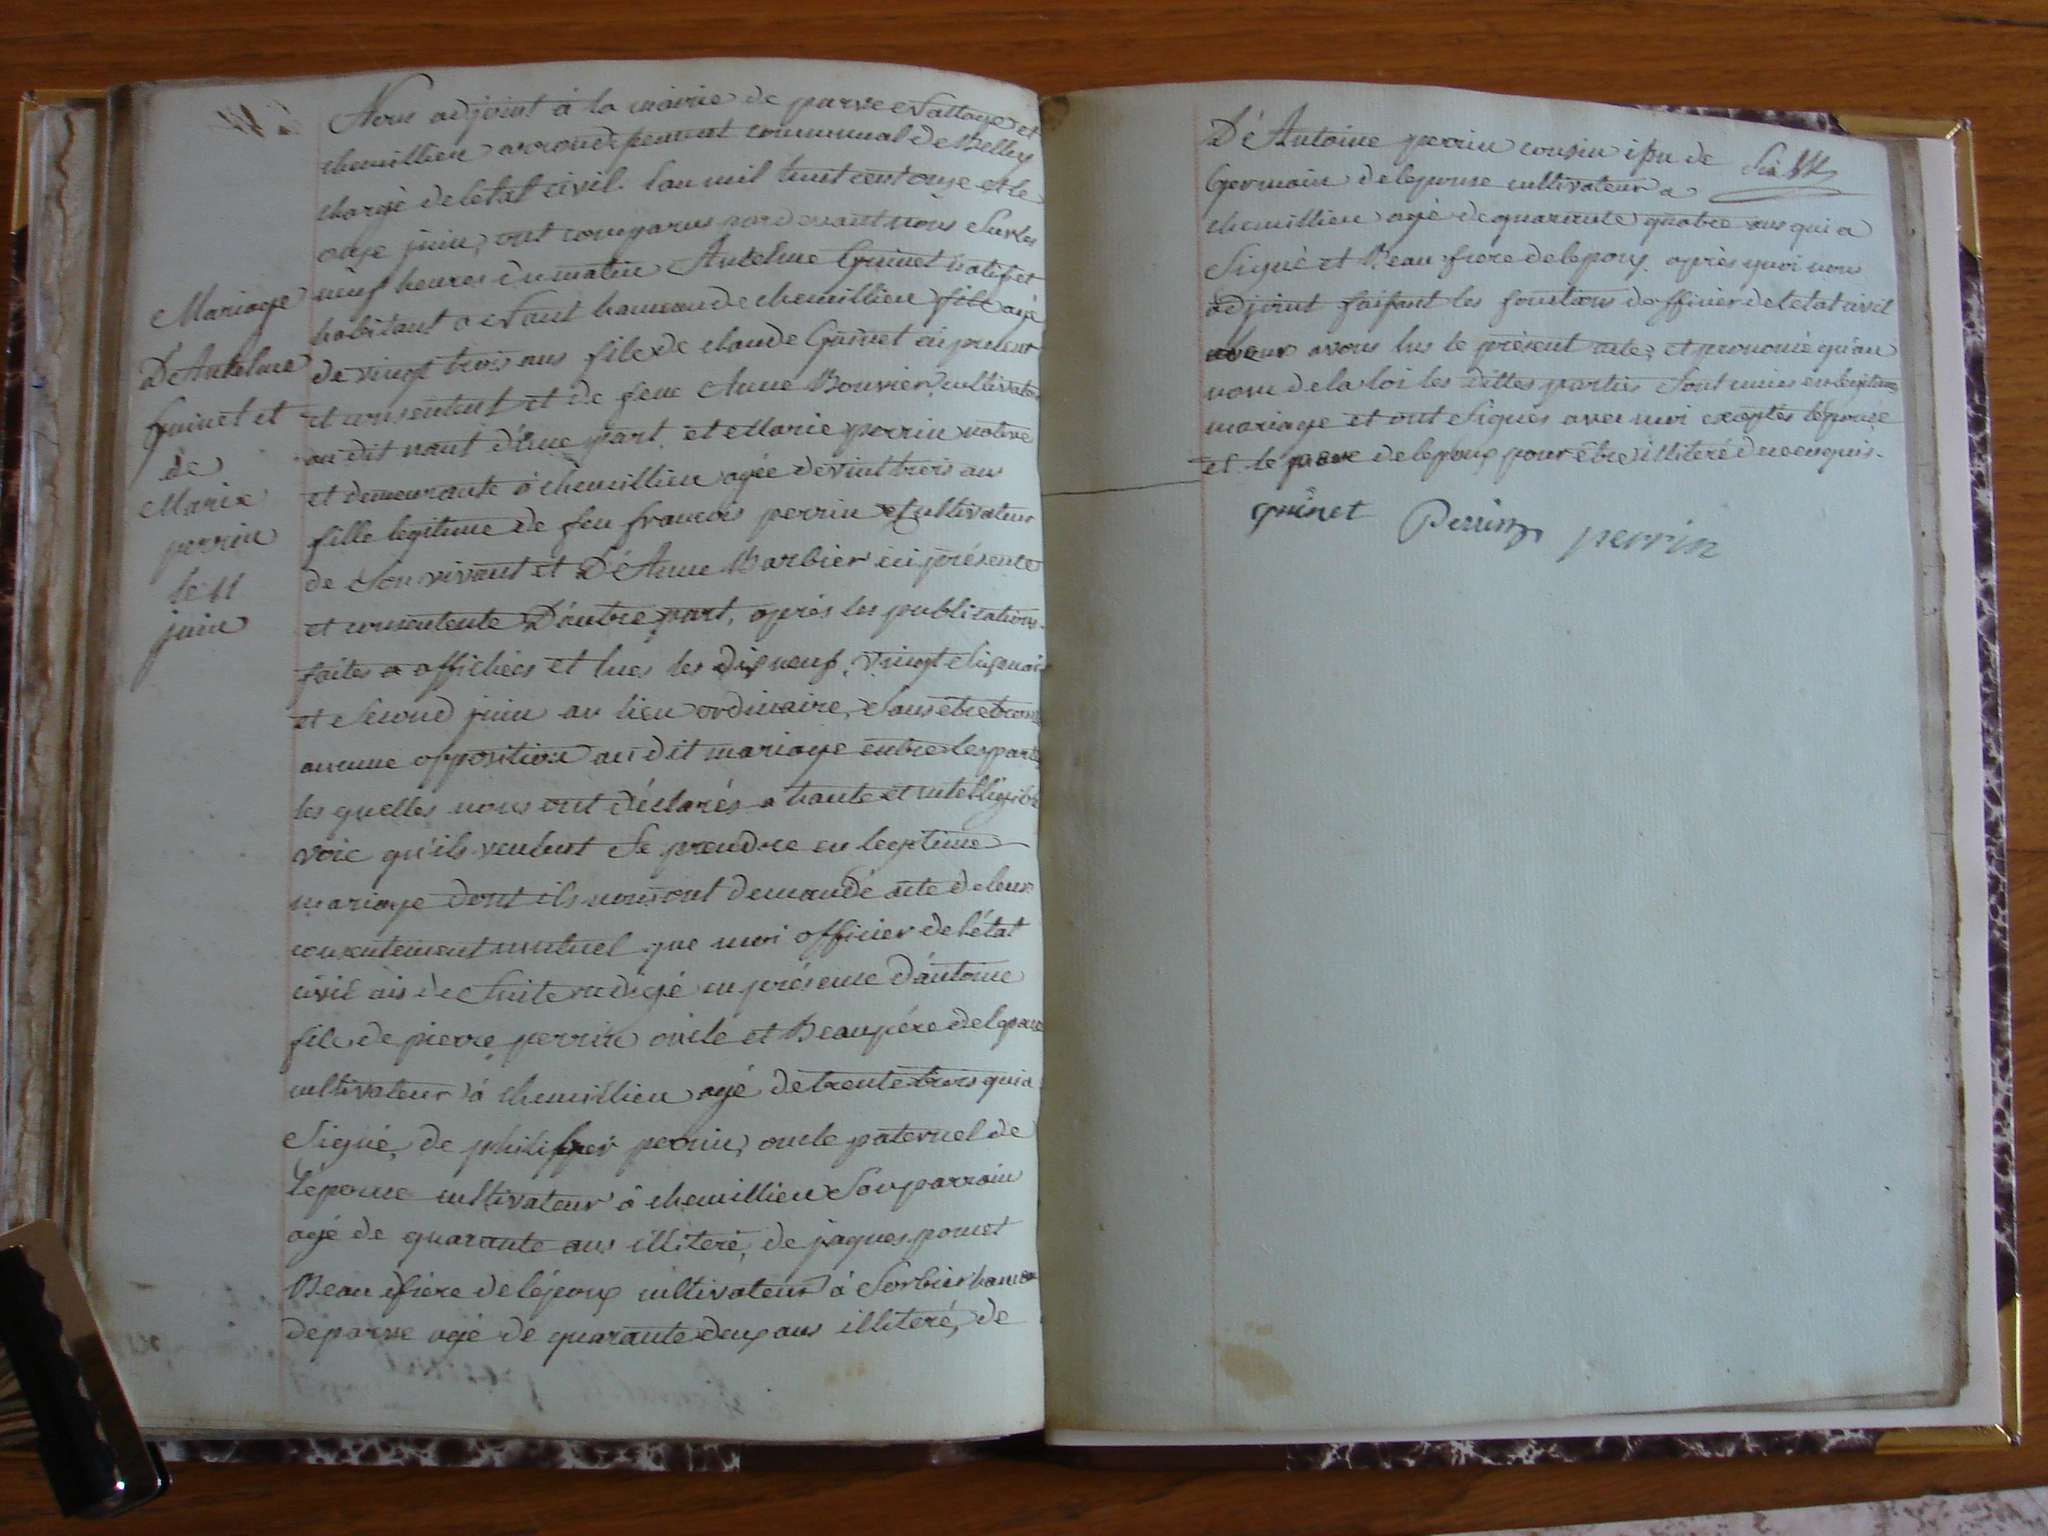 Nous adjoint à la mairie de parve et
chemillieu arrondissement communal de Belley
chargé de letat civil lan mil huit cent onze et le
onze juin, ont comparus pardevant nous Sur les
neuf heures du matin Antelme Guinet natif et
habitant a hameau de chemillieu agé
de vingt trois ans fils de claude Guinet ici présent
et consentent et de feue Anne Bouvier cultivateur
au dit nant d'une part, et Marie perrin native
et demeurante à chemillieu agée de vint trois ans
fille legitime de feu francois perrin cultivateur
de Son vivant et D'Anne Barbier ici présente
et consentente D'autre part, après les publications
faites a affichées et lues les dix neuf, vingt Six mai
et Second juin au lieu ordinaire, Sans etre
aucune opposition au dit mariage entre les
les quelles nous ont déclarés a haute et intelligible
voix qu'ils veulent Se prendre en legitime
mariage dont ils nous ont demandé acte de leur
consentement mutuel que moi officier de l'état
civil ais de Suite redigé en présence d'antoine
fils de pierre perrin oncle et Beaupére de
cultivateur à chemillieu agé de trente trois qui a
Signé, de perrin, oncle paternel de
l'épouse cultivateur à chemillieu Son parrain
agé de quarante ans illiteré, de jaques ponet
Beau frère de lépoux cultivateur à Sorbier hameau
de parve agé de quarante deux ans illiteré, de
Mariage
D'Antelme
Guinet et
de
Marie
perrin
le 11
juin
D'Antoine perrin cousin isçu de
Germain de lepouse cultivateur a
chemillieu agé de quarante quatre ans qui a
Signé et Beau frere de lepoux. après quoi nous
adjoint faisant les fonctions d'officier de letat civil
avons lus le présent acte, et prononcé qu'au
nom de la loi les dittes parties Sont unies en legitime
mariage et ont Signés avec moi exeptés l'épouse
et le pere de lepoux pour être illiteré de ce enquis.
guinet Perrin perrin